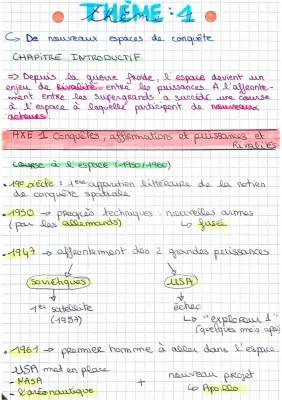 THÈME : 1
↳ De nouveaux espaces de conquête
CHAPITRE INTRODUCTIF
⇒ Depuis la guerre froide, l'espace devient un
enjeu de Rivalité entre les puissances. A l'affronte-
ment entre les supergrands a succédé une course
à l'espace à laquelle participent de nouveaux
acteurs.
AXE 1 Conquêtes, affirmations et puissances et
Rivalités
Course à l'espace (-1950/1960)
• 19e siècle : 1ère apparition littéraire de la notion
de conquête spatiale
• 1930 → progrès techniques : nouvelles armes
(par les allemands) ↳ fusée
• 1947 → affrontement des 2 grandes puissances
Soviétiques USA
1er satellite échec
(1957) ↳ "explorour 1"
(quelques mois après
• 1961 → premier homme à aller dans l'espace
USA met en place
- NASA + nouveau projet
- l'aéronautique ↳ Apollo